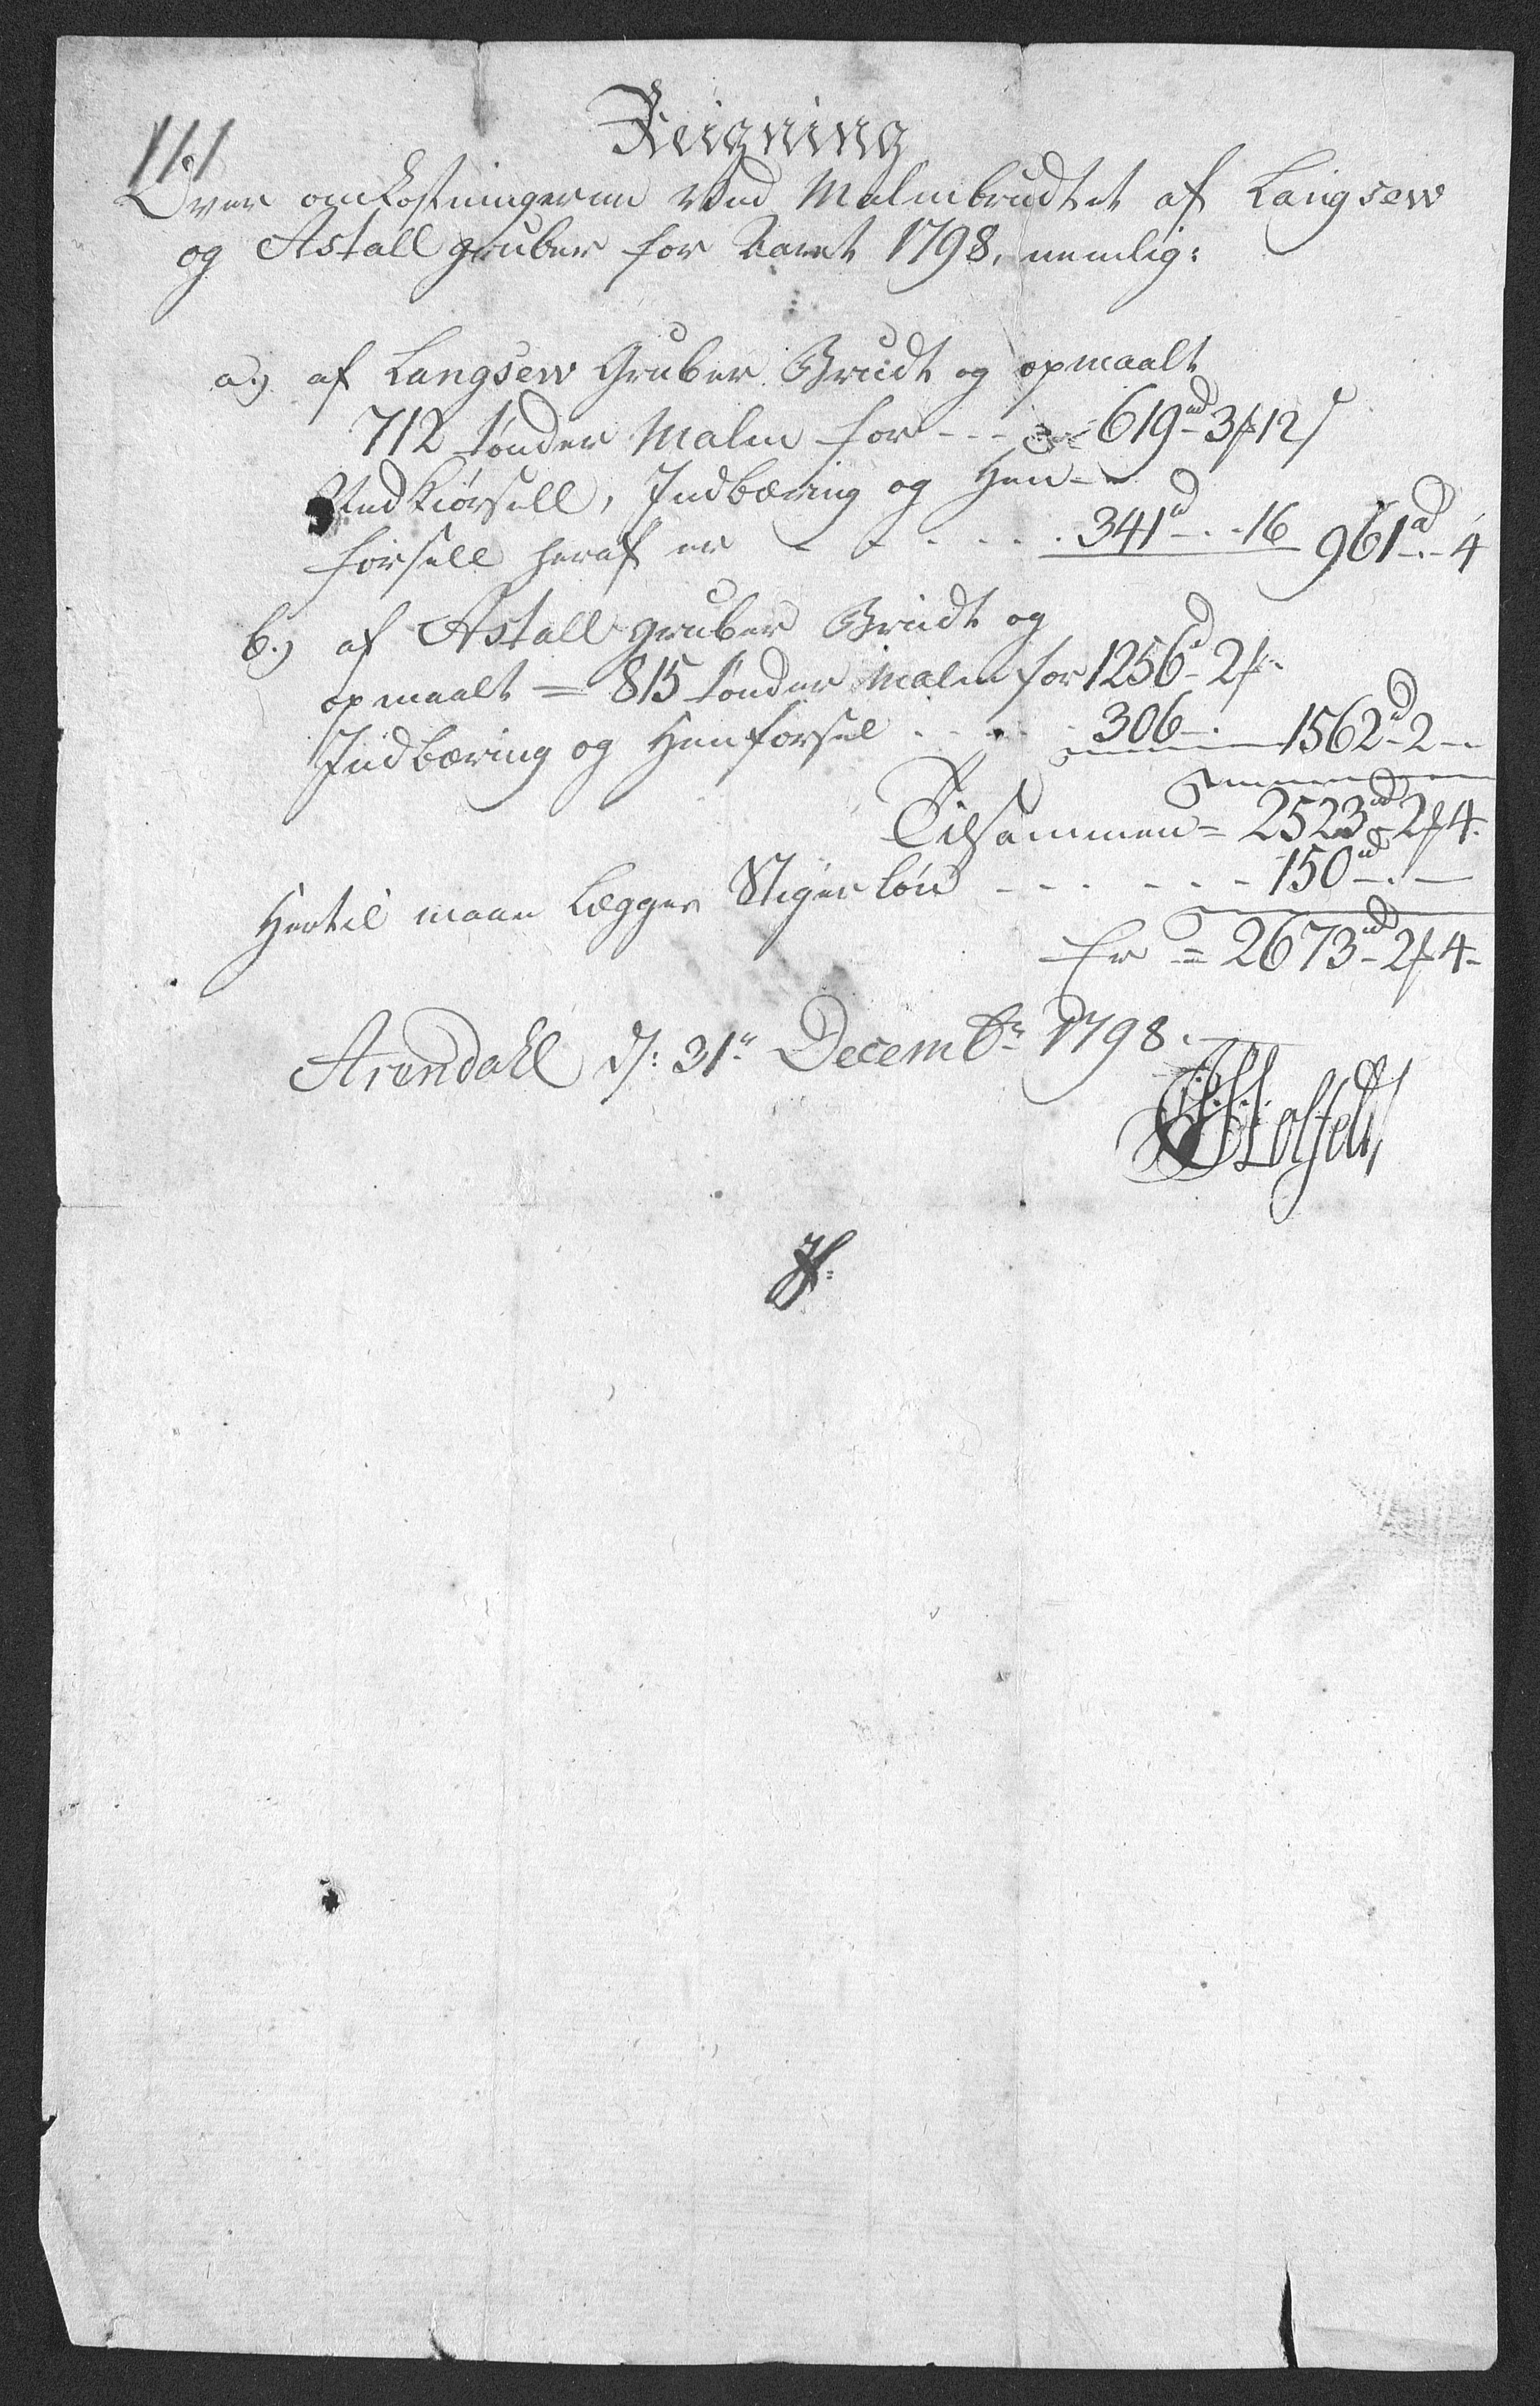 111
Reigning
Over omkostningerne ved Malmbrudtet af Langsew
og Astall gruber for Aaret 1798, nemlig:
a.) af Langsew Gruber Brudt og opmaalt
712 tønder Malm for - - - 619 rd - 3 ß 12 s
Vedkiørsell, Indbæring og Hen-
førsell heraf er - - - - - 341 rd - . - 16 961 rd - . - 4
b.) af Astall gruber Brudt og
opmaalt = 815 tønder Malm for 1256 rd - 2 ß -
Indbæring og Henførsel . . . . 306 - . 1562 rd - 2 - -
Tilsammen = 2523 rd - 2 ß 4.
Hertil maae Lægges Stiger løn - - - - - - 150 rd - . -
Er = 2673 rd - 2 ß 4 -
Arendahl d: 31te Decembr 1798.